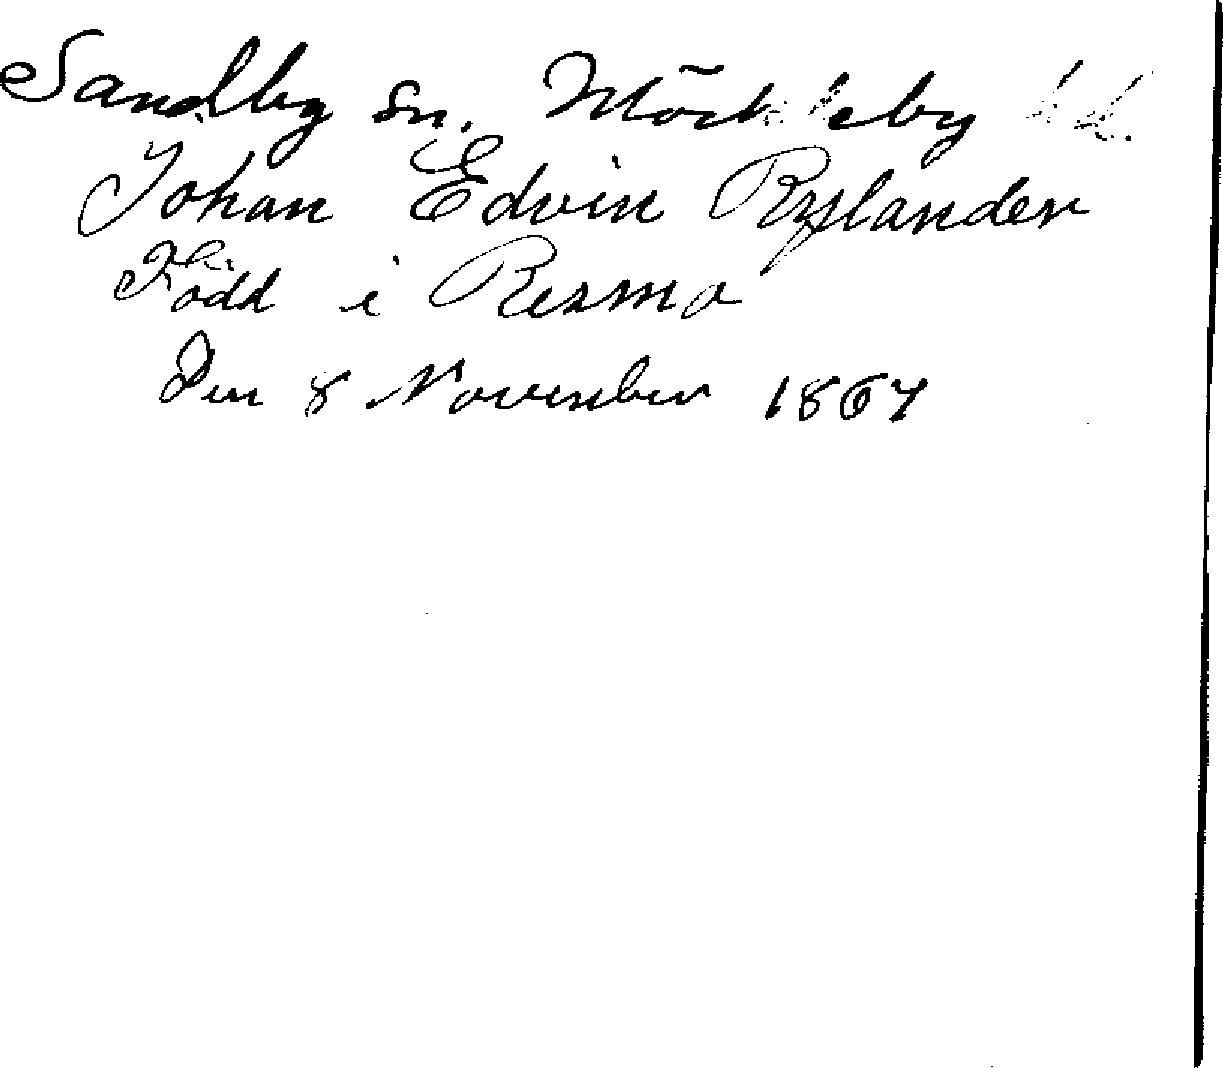 Sandby sn. Möckleby hd.
Johan Edvin Rylander
Född i Resmo
Den 8 November 1867